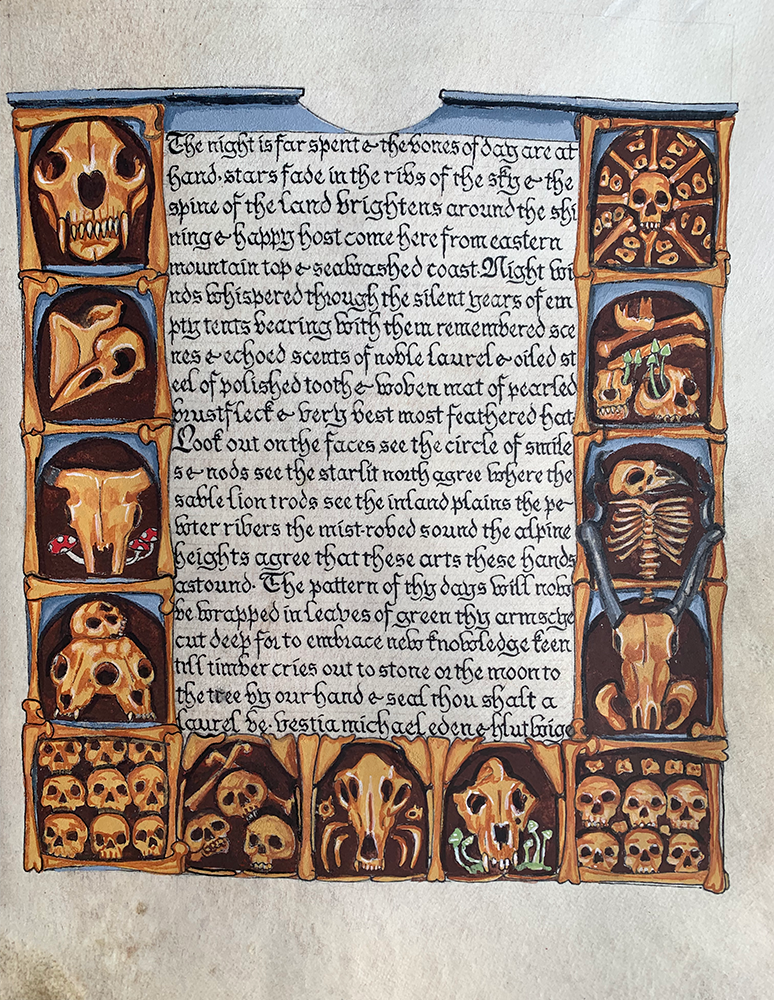 The night is far spent & the bones of day are at
hand · stars fade in the ribs of the sky & the
spine of the land brightens around the shi
ning & happy host come here from eastern
mountain top & seawashed coast · Night wi
nds whispered through the silent years of em
pty tents bearing with them remembered sce
nes & echoed scents of noble laurel & oiled st
eel of polished tooth & woven mat of pearled
brustfleck & very best most feathered hat
Look out on the faces see the circle of smile
s & nods see the starlit north agree where the
sable lion trods see the inland plains the pe-
wter rivers the mist-robed sound the alpine
heights agree that these arts these hands
astound · The pattern of thy days will now
be wrapped in leaves of green thy armscye
cut deep for to embrace new knowledge keen
till timber cries out to stone or the moon to
the tree by our hand & seal thou shalt a
laurel be · vestia michael eden & hlutwige